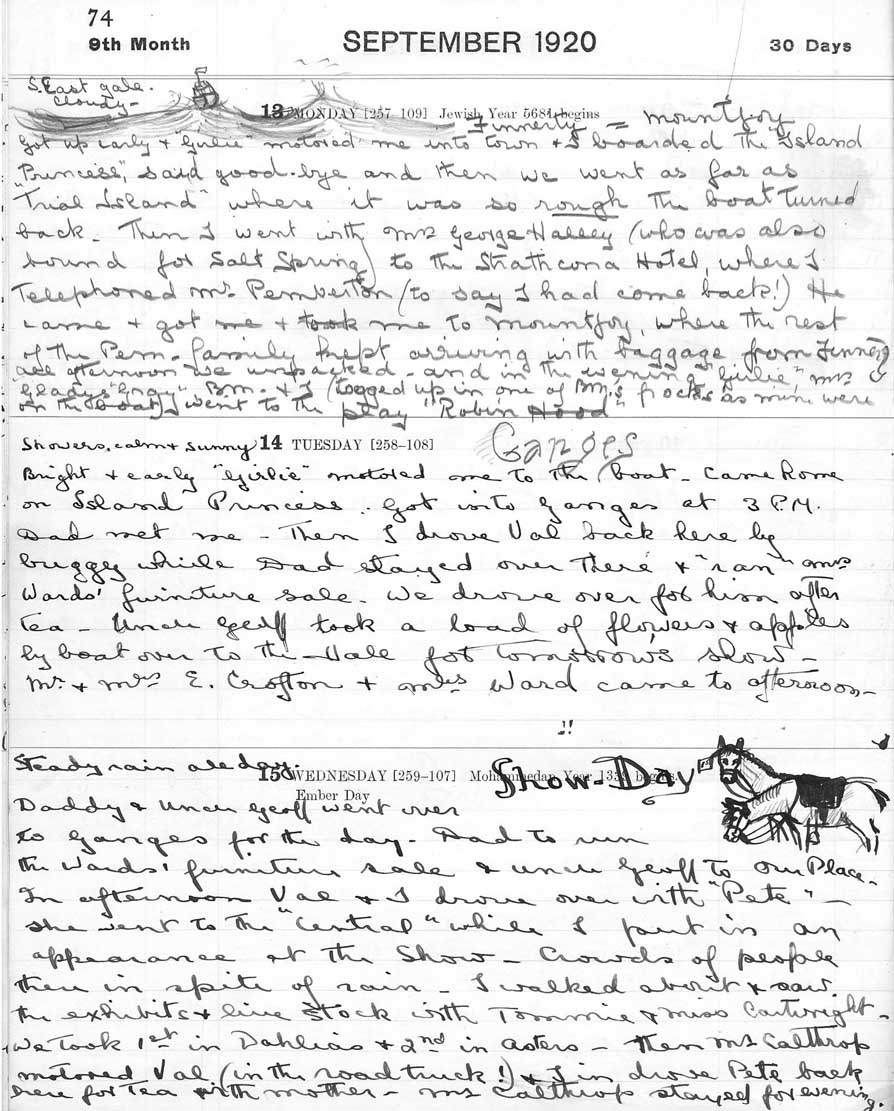 74
9th Month
SEPTEMBER 1920
30 Days
S. East gale.
Cloudy -
13 MONDAY [257-109] Jewish Year 5681 begins
Finnerty = Mountjoy
Got up early & "Girlie" motored me into town & I boarded the "Island
Princess", said good-bye and then we went as far as
"Trial Island" where it was so rough the boat turned
back. Then I went with Mrs George Halley (who was also
bound for Salt Spring) to the Strathcona Hotel, where I
Telephoned Mr. Pemberton (to say I had come back!) He
came & got me & took me to Mountjoy, where the rest
of the Pem. family kept arriving with baggage from Finnerty
all afternoon we unpacked - and in the evening "Girlie", Mrs
"Gladys" Gray" B.m. & I (togged up in one of B.M.'s frocks as mine were
on the boat) went to the play "Robin Hood"
Showers, calm & sunny 14 TUESDAY [258-108]
Ganges
Bright & early "Girlie" motored me to the boat - Came home
on Island Princess.. Got into Ganges at 3 P.M.
Dad met me - Then I drove Val back here by
buggy while Dad stayed over there & "ran" Mrs
Wards' furniture sale. We drove over for him after
tea - Uncle Geoff took a load of flowers & apples
by boat over to the Hall for tomorrow's show -
Mr. & Mrs E. Crofton & Mrs Ward came to afternoon -
!!
Steady rain all day.
15 WEDNESDAY [259-107] Mohammedan Year 1339 begins.
Ember Day
Show-Day
Daddy & Uncle Geoff went over
to Ganges for the day - Dad to run
the Wards' furniture sale & Uncle Geoff to our Place -
In afternoon Val & I drove over with "Pete" -
she went to the "Central" while I put in an
appearance at the Show - Crowds of people
there in spite of rain - I walked about & saw
the exhibits & live stock with Tommie & Miss Cartwright -
We took 1st in Dahlias & 2nd in Asters - then Mr Calthrop
motored Val (in the road truck!) & I in drove Pete back
here for tea with mother - Mr Calthrop stayed for evening.